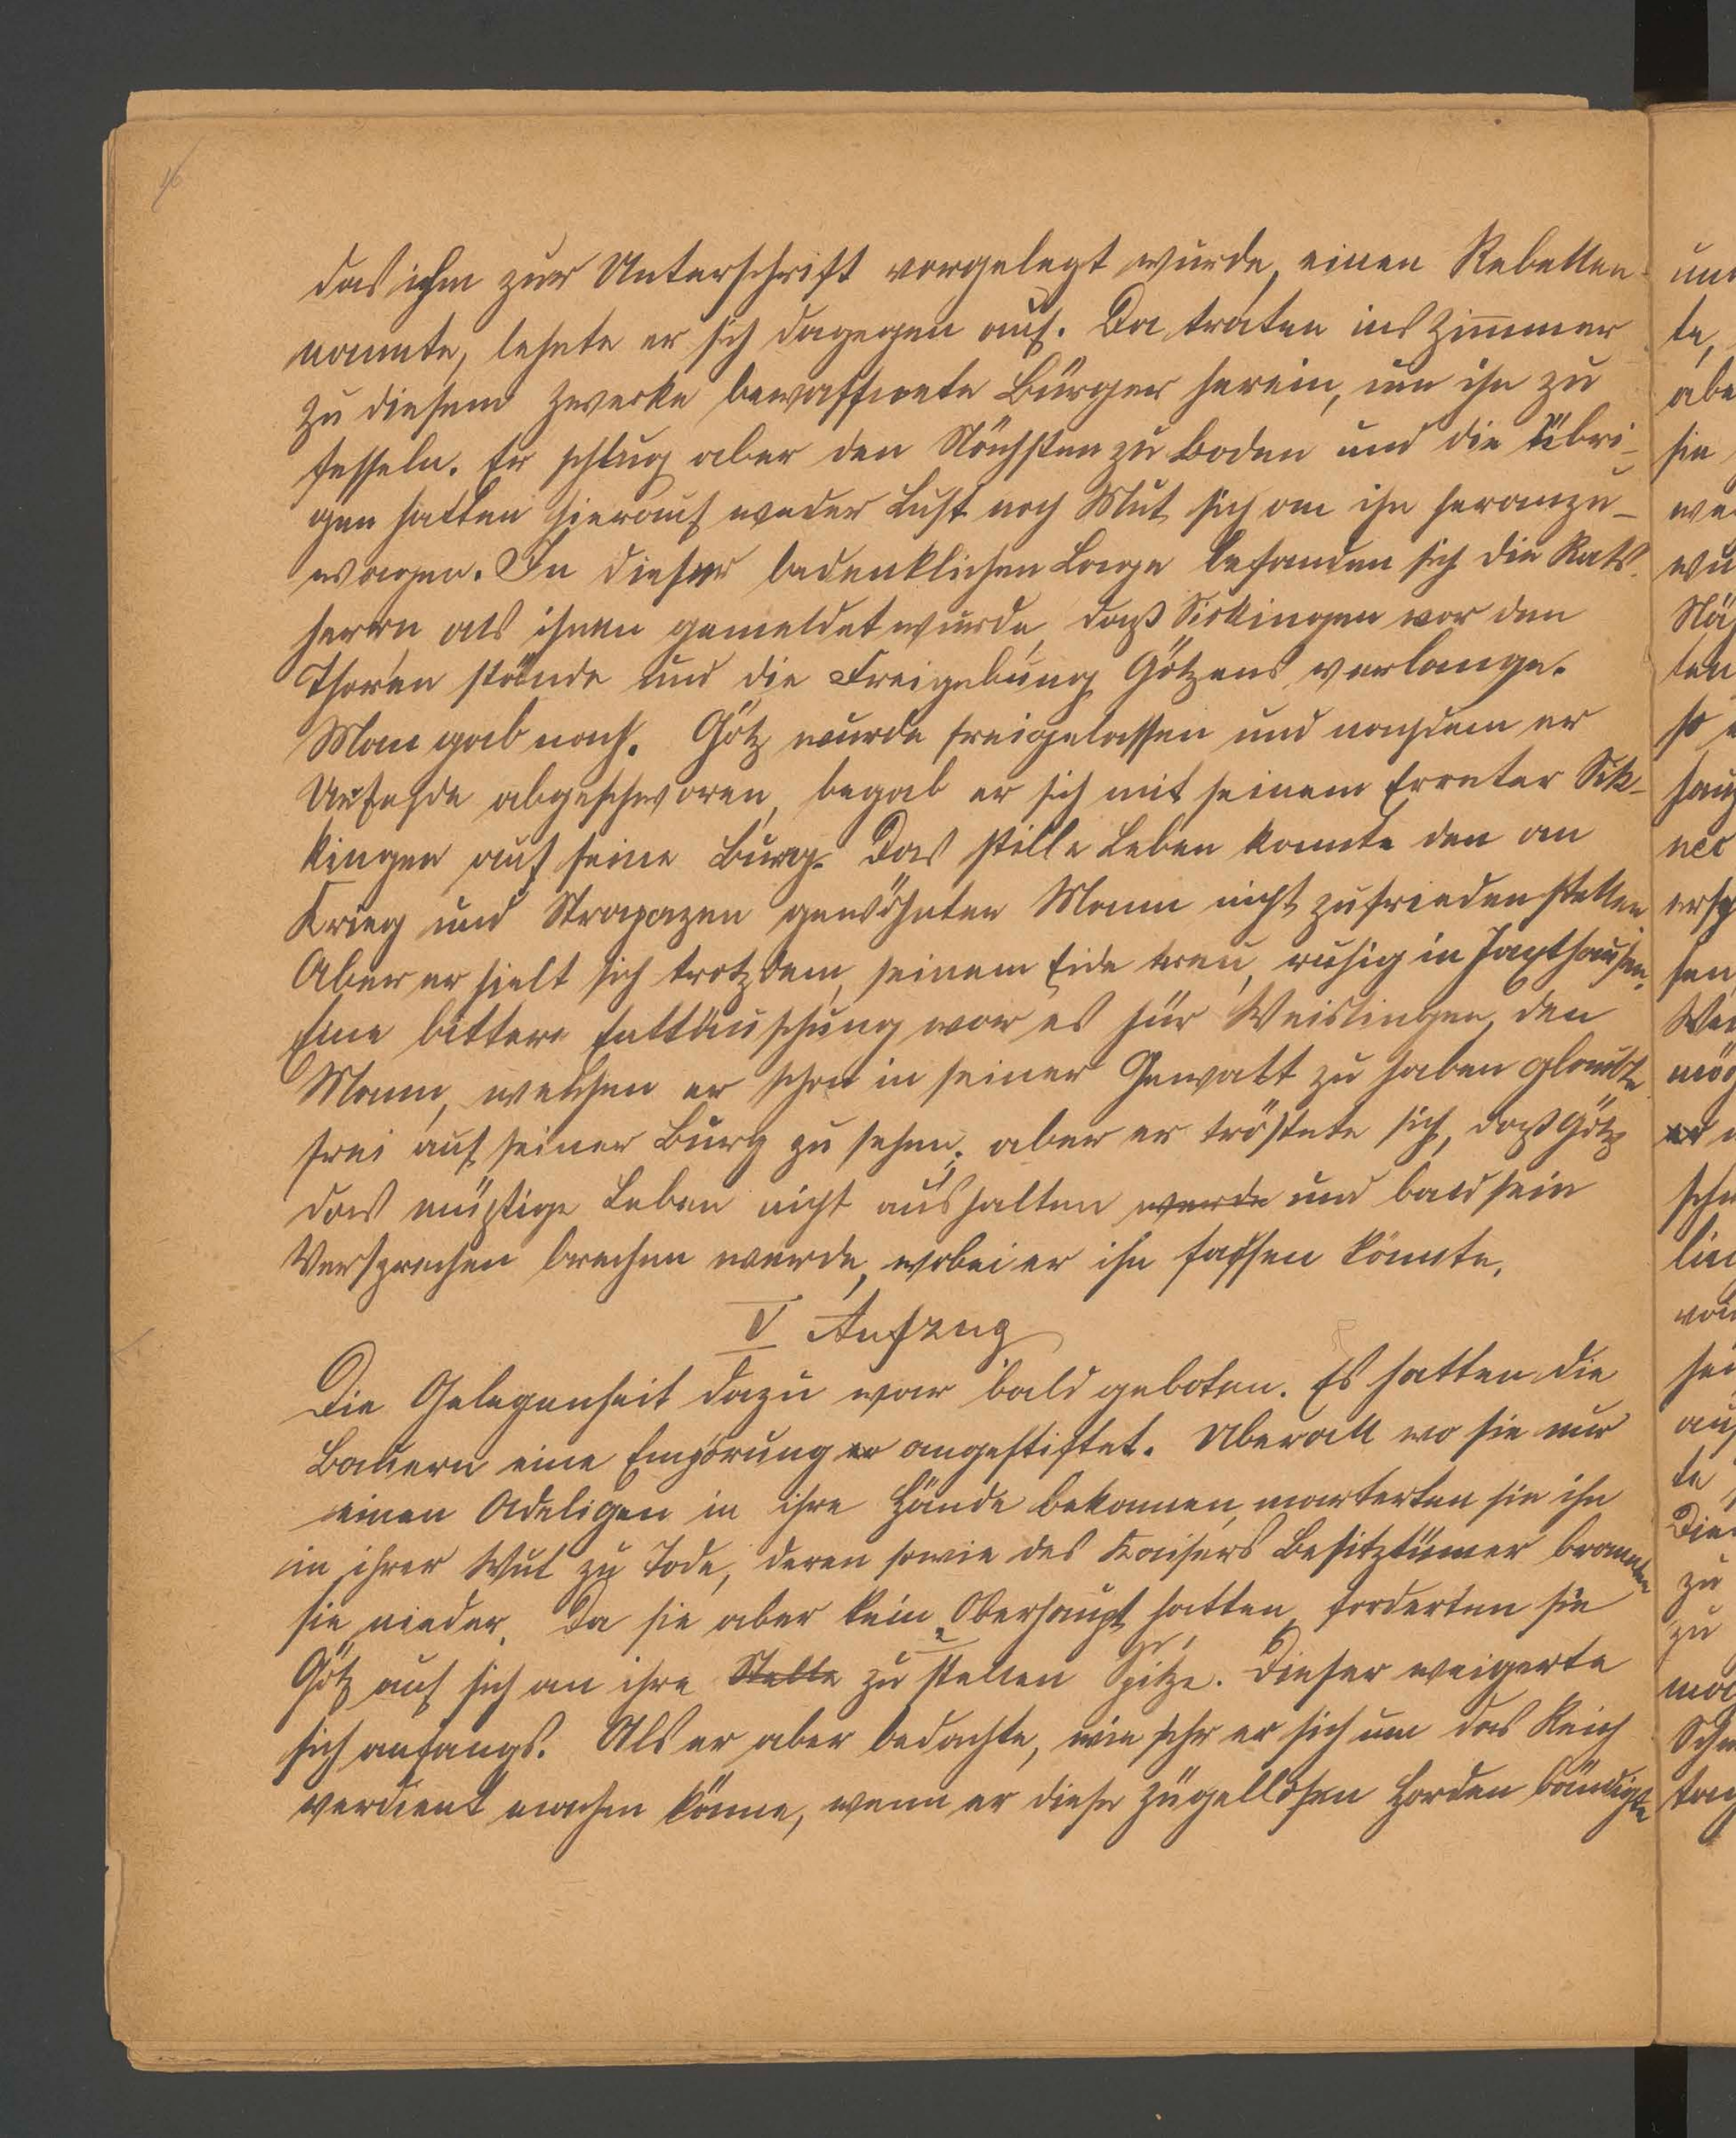 46
das ihm zur Unterschrift vorgelegt wurde, einen Rebellen
nannte, lehnte er sich dagegen auf. Da traten ins Zimmer
zu diesem Zwecke bewaffnete Bürger herein, um ihn zu
fesseln. Er schlug aber den Nächsten zu Boden und die übri-
gen hatten hierauf weder Lust noch Mut sich an ihn heranzu-
wagen. In dieser bedenklichen Lage befanden sich die Rats-
herrn als ihnen gemeldet wurde, daß Sickingen vor den
Thoren stände und die Freigebung Götzens verlange.
Man gab nach. Götz wurde freigelassen und nachdem er
Urfehde abgeschworen, begab er sich mit seinem Erreter Sik-
kingen auf seine Burg. Das stille Leben konnte den an
Krieg und Strapazen gewöhnten Mann nicht zufriedenstellen
Aber er hielt sich trotzdem, seinem Eide treu, ruhig in Jaxthausen.
Eine bittere Enttäuschung war es für Weislingen, den
Mann, welchen er schon in seiner Gewalt zu haben glaubte
frei auf seiner Burg zu sehen; aber er tröstete sich, daß Götz
das müßige Leben nicht aushalten werde und bald sein
Versprechen brechen werde, wobei er ihn fassen könnte.
V Aufzug
Die Gelegenheit dazu war bald geboten. Es hatten die
Bauern eine Empörung er angestiftet. Überall wo sie nur
einen Adeligen in ihre Hände bekamen, marterten sie ihn
in ihrer Wut zu Tode, deren sowie des Kaisers Besitztümer brannten
sie nieder. Da sie aber kein Oberhaupt hatten, forderten sie
Götz auf sich an ihre Stelle zu stellen Spitze. Dieser weigerte
sich anfangs. Als er aber bedachte, wie sehr er sich um das Reich
verdient machen könne, wenn er diese zügellosen Horden bändigte